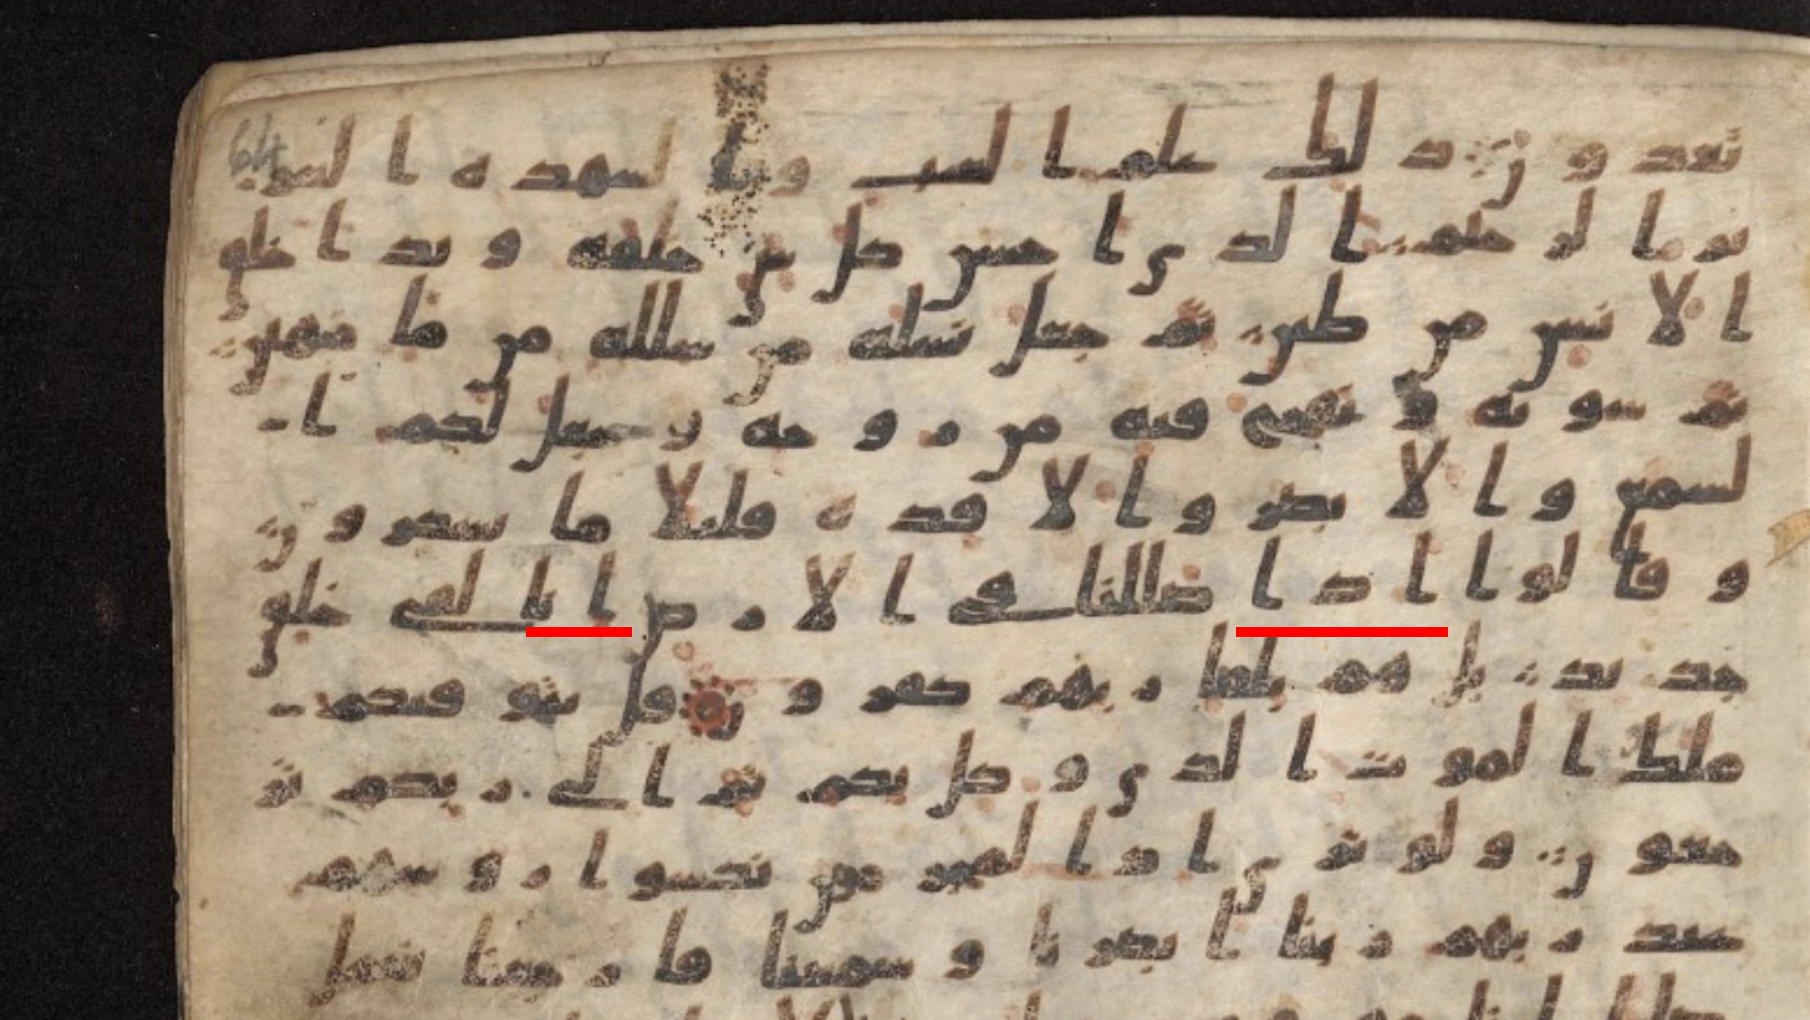 64
تعدون ذلك علم الغيب والشهده العز
يز الرحيم الذي احسن كل شي خلقه وبدا خلق
الانسن من طين ثم جعل نسله من سلله من ما مهين
ثم سويه ونفخ فيه من روحه وجعل لكم ا
لسمع والابصر والافده قليلا ما تشكرون
وقالوا اذا ضللنا في الارض انا لفي خلق
جديد بل هم بلقا ربهم كفرون قل يتوفيكم
ملك الموت الذي وكل بكم ثم الى ربكم تر
جعون ولو ترى اذ المجرمون نكسوا روسهم
عند ربهم ربنا ابصرنا وسمعنا فارجعنا نعمل